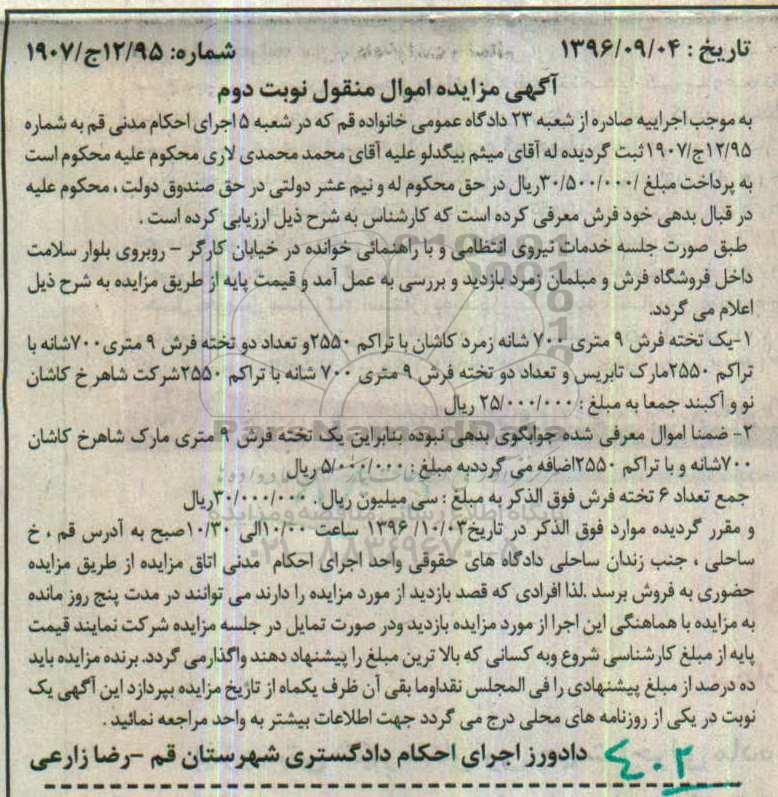 تاریخ : ۱۳۹۶/۰۹/۰۴ شماره: ۱۲/۹۵ج/۱۹۰۷
آگهی مزایده اموال منقول نوبت دوم
به موجب اجراییه صادره از شعبه ۲۳ دادگاه عمومی خانواده قم که در شعبه ۵ اجرای احکام مدنی قم به شماره
۱۲/۹۵ج/۱۹۰۷ثبت گردیده له آقای میثم بیگدلو علیه آقای محمد محمدی لاری محکوم علیه محکوم است
به پرداخت مبلغ /۳۰/۵۰۰/۰۰۰ریال در حق محکوم له و نیم عشر دولتی در حق صندوق دولت ، محکوم علیه
در قبال بدهی خود فرش معرفی کرده است که کارشناس به شرح ذیل ارزیابی کرده است .
طبق صورت جلسه خدمات نیروی انتظامی و با راهنمائی خوانده در خیابان کارگر – روبروی بلوار سلامت
داخل فروشگاه فرش و مبلمان زمرد بازدید و بررسی به عمل آمد و قیمت پایه از طریق مزایده به شرح ذیل
اعلام می گردد.
۱-یک تخته فرش ۹ متری ۷۰۰ شانه زمرد کاشان با تراکم ۲۵۵۰و تعداد دو تخته فرش ۹ متری۷۰۰شانه با
تراکم ۲۵۵۰مارک تابریس و تعداد دو تخته فرش ۹ متری ۷۰۰ شانه با تراکم ۲۵۵۰شرکت شاهر خ کاشان
نو و آکبند جمعا به مبلغ : ۲۵/۰۰۰/۰۰۰ ریال
ParsNamadData
۲- ضمنا اموال معرفی شده جوابگوی بدهی نبوده بنابراین یک تخته فرش ۹ متری مارک شاهرخ کاشان
۷۰۰شانه و با تراکم ۲۵۵۰اضافه می گرددبه مبلغ : ۵/۰۰۰/۰۰۰ ریال
جمع تعداد ۶ تخته فرش فوق الذکر به مبلغ : سی میلیون ریال ۳۰/۰۰۰/۰۰۰ریال
و مقرر گردیده موارد فوق الذکر در تاریخ۱۳۹۶/۱۰/۰۳ ساعت ۱۰/۰۰الی ۱۰/۳۰صبح به آدرس قم ، خ
ساحلی ، جنب زندان ساحلی دادگاه های حقوقی واحد اجرای احکام مدنی اتاق مزایده از طریق مزایده
حضوری به فروش برسد .لذا افرادی که قصد بازدید از مورد مزایده را دارند می توانند در مدت پنج روز مانده
به مزایده با هماهنگی این اجرا از مورد مزایده بازدید ودر صورت تمایل در جلسه مزایده شرکت نمایند قیمت
پایه از مبلغ کارشناسی شروع وبه کسانی که بالا ترین مبلغ را پیشنهاد دهند واگذارمی گردد. برنده مزایده باید
ده درصد از مبلغ پیشنهادی را فی المجلس نقداوما بقی آن ظرف یکماه از تاریخ مزایده بپردازد این آگهی یک
نوبت در یکی از روزنامه های محلی درج می گردد جهت اطلاعات بیشتر به واحد مراجعه نمائید .
دادورز اجرای احکام دادگستری شهرستان قم –رضا زارعی